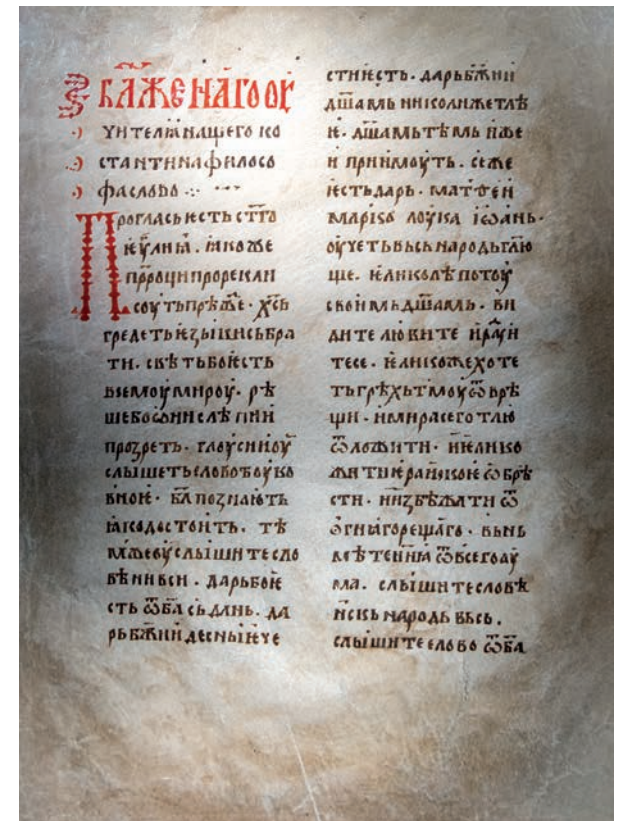 БЛ҃ЖЕНАГО ОУ
УНТЕЛꙖ НАШЕГО КО
СТАНТИНА ФИЛОСО
ФА СЛОВО
ПРОГЛАСЬ ѤСТЬ СТ҃ГО
ѤѴ҃ЛИꙖ · ꙖКОЖЕ
ПРР҃ОЦИ ПРОРЕКЛИ
СОУТЬ ПРѢЖ҃Е · Х҃СЬ
ГРЕДЕТЬ ѤЗЫКИ СЬБРА
ТИ · СВѢТЬ БО ѤСТЬ
ВЬСЕМОУ МИРОУ · РѢ
ШЕ БО ѠНИ СЛѢПИИ
ПРОЗРЕТЬ · ГЛОУСИИ ОУ
СЛЫШЕТЬ СЛОВО БОУКО
ВНОѤ · Б҃А ПОЗНАЮТЬ
ꙖКО ДОСТОИТЬ · ТѢ
МЬЖЕ ОУСЛЫШИТЕ СЛО
ВѢНИ ВСИ · ДАРЬ БО Ѥ
СТЬ Ѿ Б҃А СЬ ДАНЬ · ДА
РЬ БЖ҃ИИ ДЕСНЫѤ ЧЕ
СТИ ѤСТЬ · ДАРЬ БЖ҃ИИ
ДШ҃АМЬ НИКОЛИЖЕ ТЛѢ
Ѥ · ДШ҃АМЬ ТѢМЬ ИЖЕ
И ПРИИМОУТЬ · СЕ ЖЕ
ѤСТЬ ДАРЬ · МАТѲЕИ
МАРЬКО ЛОУКА ІѠАНЬ ·
ОУЧЕТЬ ВЬСЬ НАРОДЬ ГЛ҃Ю
ЩЕ · ѤЛИКО ЛѢПОТОУ
СВОИМЬ ДШ҃АМЬ · ВИ
ДИТЕ ЛЮБИТЕ И РА҃УИ
ТЕСЕ · ѤЛИКОЖЕ ХОТЕ
ТЬ ГРѢХЬ ТМОУ ѾВРѢ
ЩИ · И МИРА СЕГО ТЛЮ
ѾЛОЖИТИ · И ѤЛИКО
ЖИТИѤ РАИСКОѤ ѠБРѢ
СТИ · И ИЗБѢЖАТИ Ѿ
ѠГНꙖ ГОРЕЩАГО · ВЬНЬ
МѢТЕ НИНꙖ Ѿ ВСЕГО ОУ
МА · СЛЫШИТЕ СЛОВѢ
НСКЬ НАРОДЬ ВЬСЬ ·
СЛЫШИТЕ СЛОВО Ѿ Б҃А